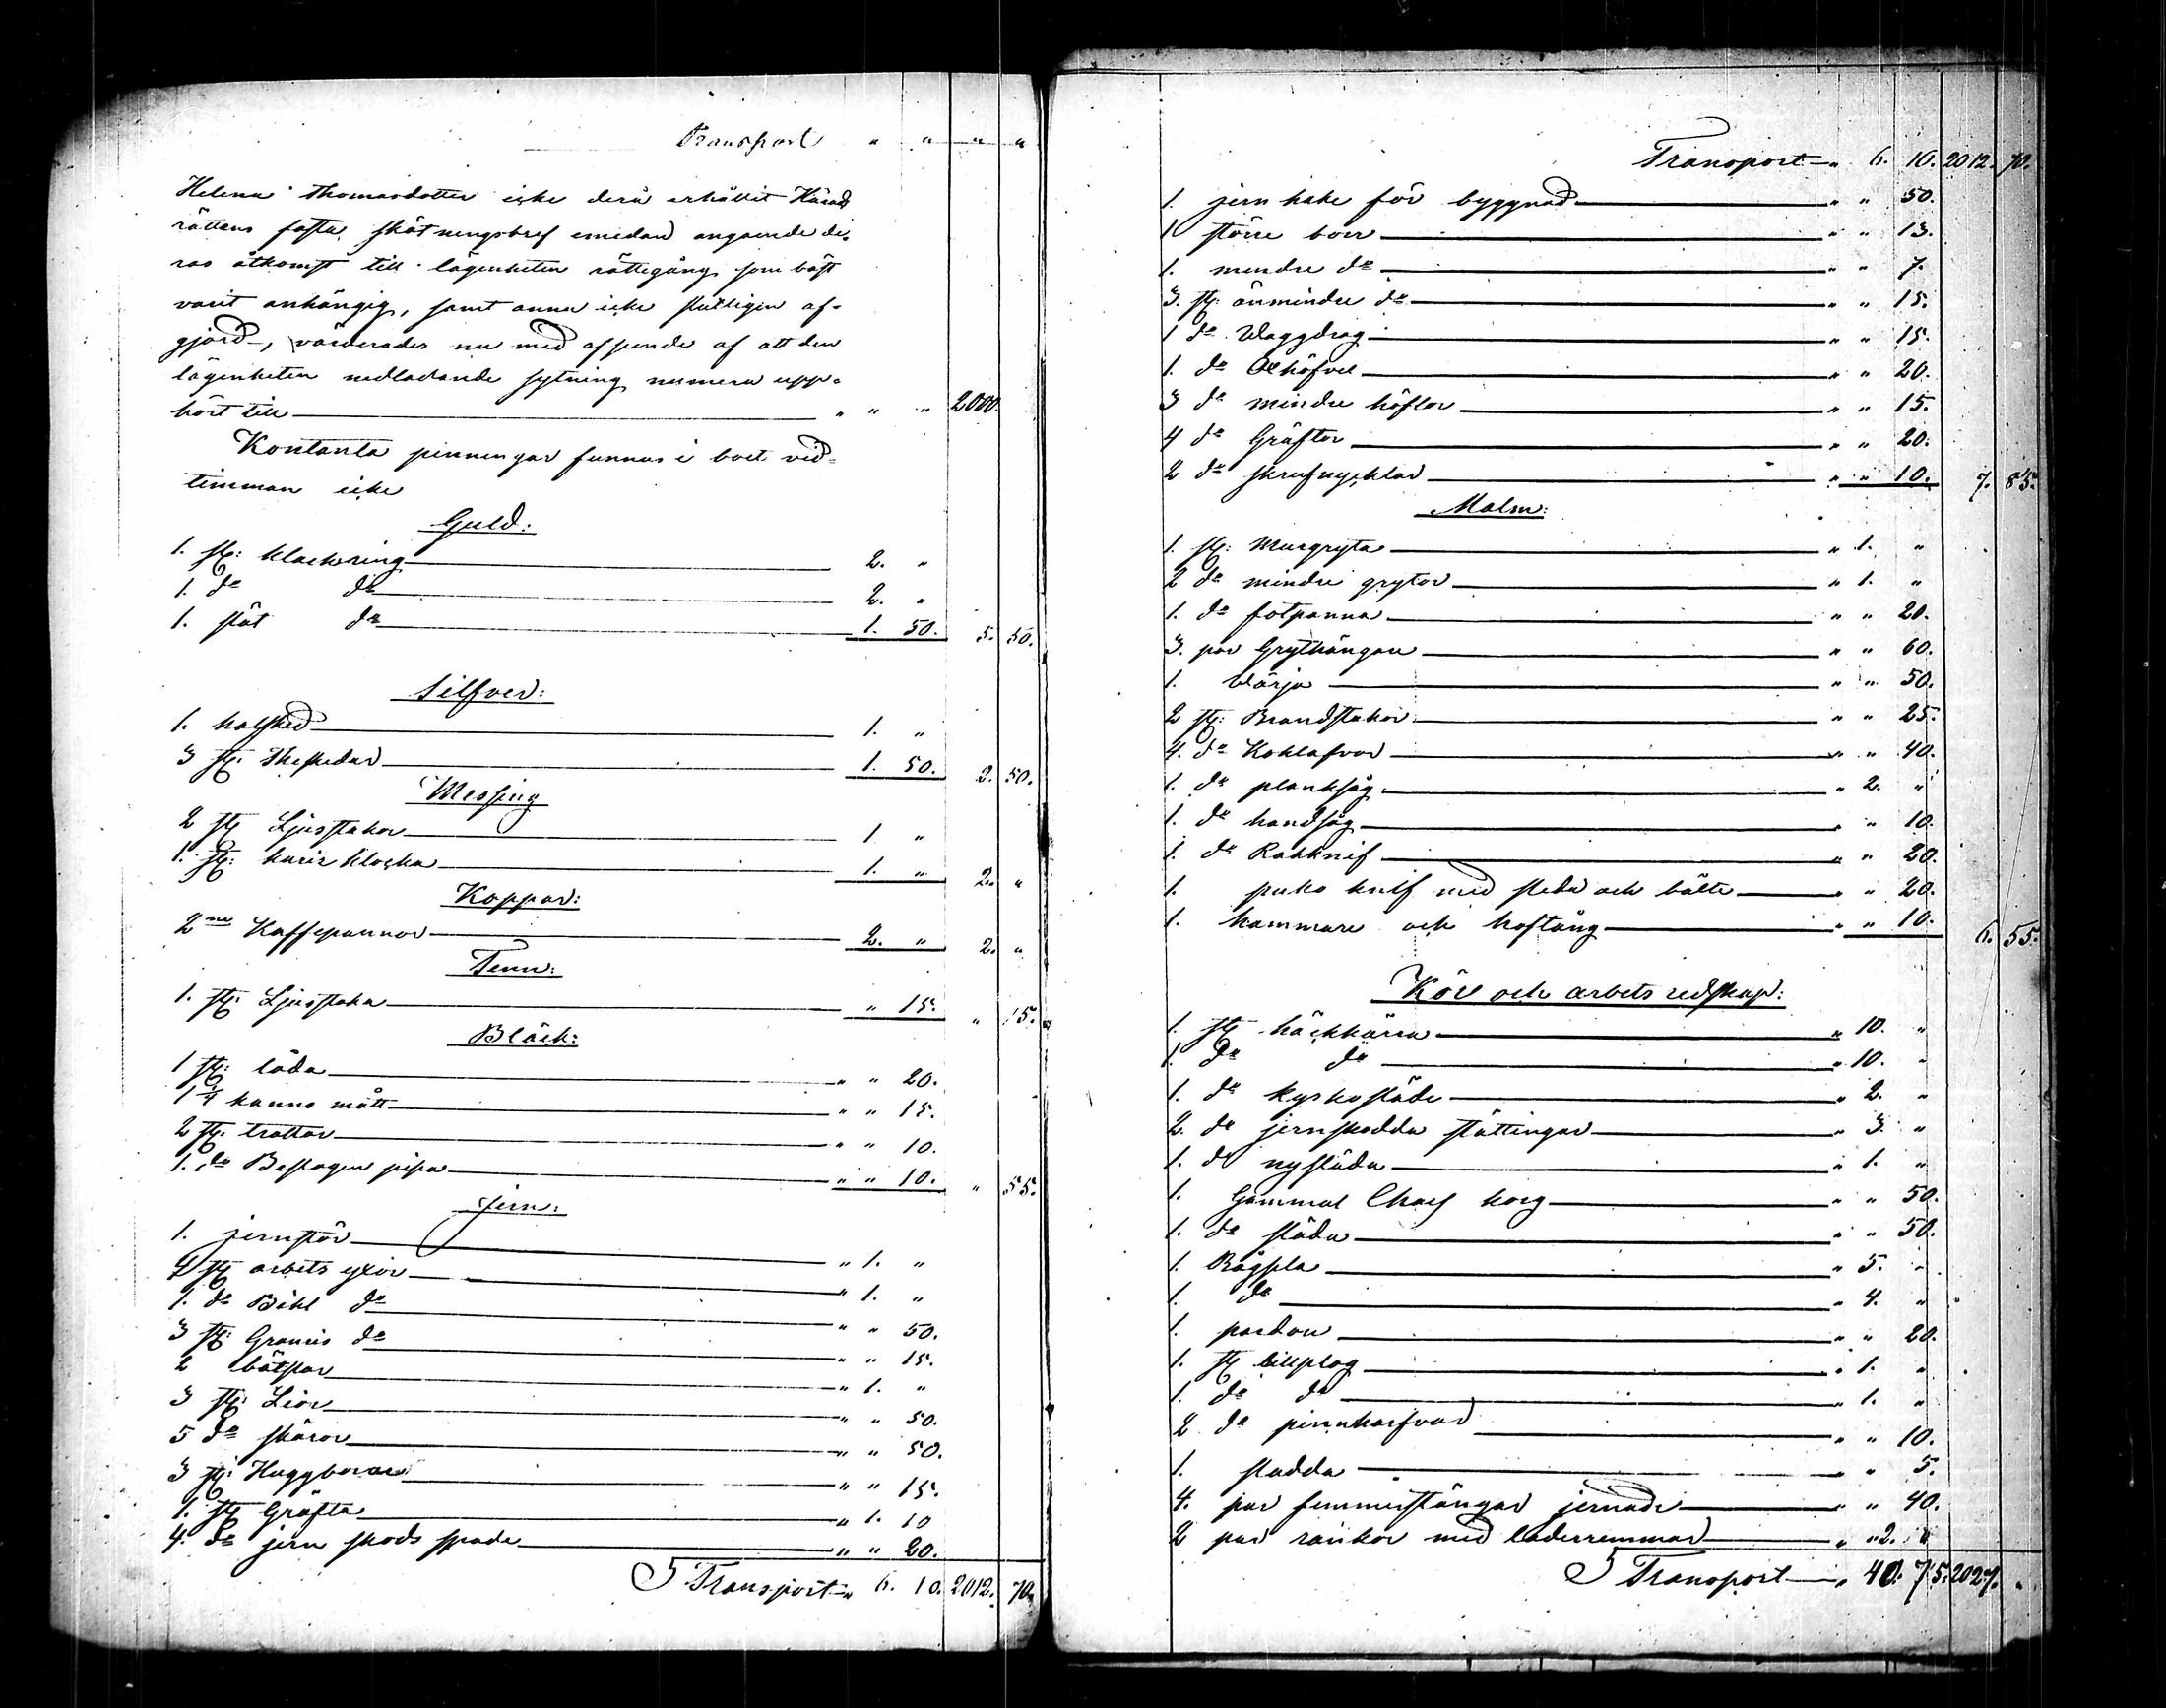 Transport " " " "
Helena Thomasdotter icke derå erhållit Härads
rättens fasta skötningsbref emedan angående de-
ras åtkomst till lägenheten rättegång som bäst
varit anhängig, samt ännu icke slutligen af-
gjord, värderades nu med afseende af att den
lägenheten nedlastande sytning numera upp-
hört till " " " 2000.
Kontanta penningar funnos i boet vid
timman icke
Guld:
1. st: klackring 2. "
1. do do 2. "
1. slät do 1. 50. 5. 50.
Silfver:
1. matsked 1. "
3 st. theskedar 1. 50. 2. 50.
Messing
2 st Ljusstakar 1 "
1. st: klocka 1. " 2. "
Koppar:
2ne Kaffepannor 2. " 2. "
Tenn:
1. st: Ljusstaka " 15. " 15.
Bläck:
1 st: låda " " 20.
1 1/4 kanns mått " " 15.
2 st. trattar " " 10.
1. do pipa " " 10. " 55.
Jern:
1. jernstör " 1. "
4 st arbets yxor " 1. "
1. do Bihl do " " 50.
3 st: do " " 15.
2 " 1. "
3 st: Liar " " 50.
5 do skäror " " 50.
3 st: Huggborar " " 15.
1. st Gräfta " 1. 10
4. do jern skods spade " " 20.
Transport " 6. 10. 2012. 70.
Transport " 6. 10. 2012. 70.
1. jern hake för byggnad " " 50.
1 större borr " " 13.
1. mindre do " " 7.
3. st: änmindre do " " 15.
1 do Waggdrag " " 15.
1. do höfvel " " 20.
3 do mindre höflar " " 15.
4 do Gräftor " " 20.
2 do skrufnycklar " " 10. 7. 85.
Malm:
1. st: Murgryta " 1. "
2 do mindre grytor " 1. "
1. do fotpanna " " 20.
3. par Grythängare " " 60.
1. Wärja " " 50.
2 st: Brandstakar " " 25.
4. do Kohlafvar " " 40.
1. do planksåg " 2. "
1. do handsåg " " 10.
1. do Rakknif " " 20.
1. puko knif med slida och bälte " " 20.
1. hammare och hoftång " " 10. 6. 55.
Kör och arbets redskap:
1. st häckkärra " 10. "
1. do do " 10. "
1. do kyrkosläde " 2. "
2. do jernskodda stöttingar " 3. "
1. do nysläda " 1. "
1. Gammal korg " " 50.
1. do släda " " 50.
1. " 5. "
1. do " 4. "
1. " " 20.
1. st billplog " 1. "
1. do do " 1. "
2 do pinnharfvar " " 10.
1. sladda " " 5.
4. par femmerstänger jernade " " 40.
2 par rankor med läderremmar " 2. "
Transport " 40. 75. 2027. "